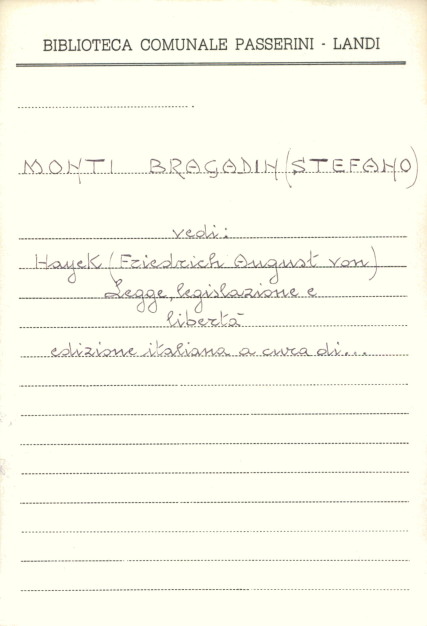 BIBLIOTECA COMUNALE PASSERINI - LANDI
MONTI BRAGADIN (STEFANO)
vedi:
Hayek (Friedrich August von)
Legge, legislazione e
libertà
edizione italiana a cura di...